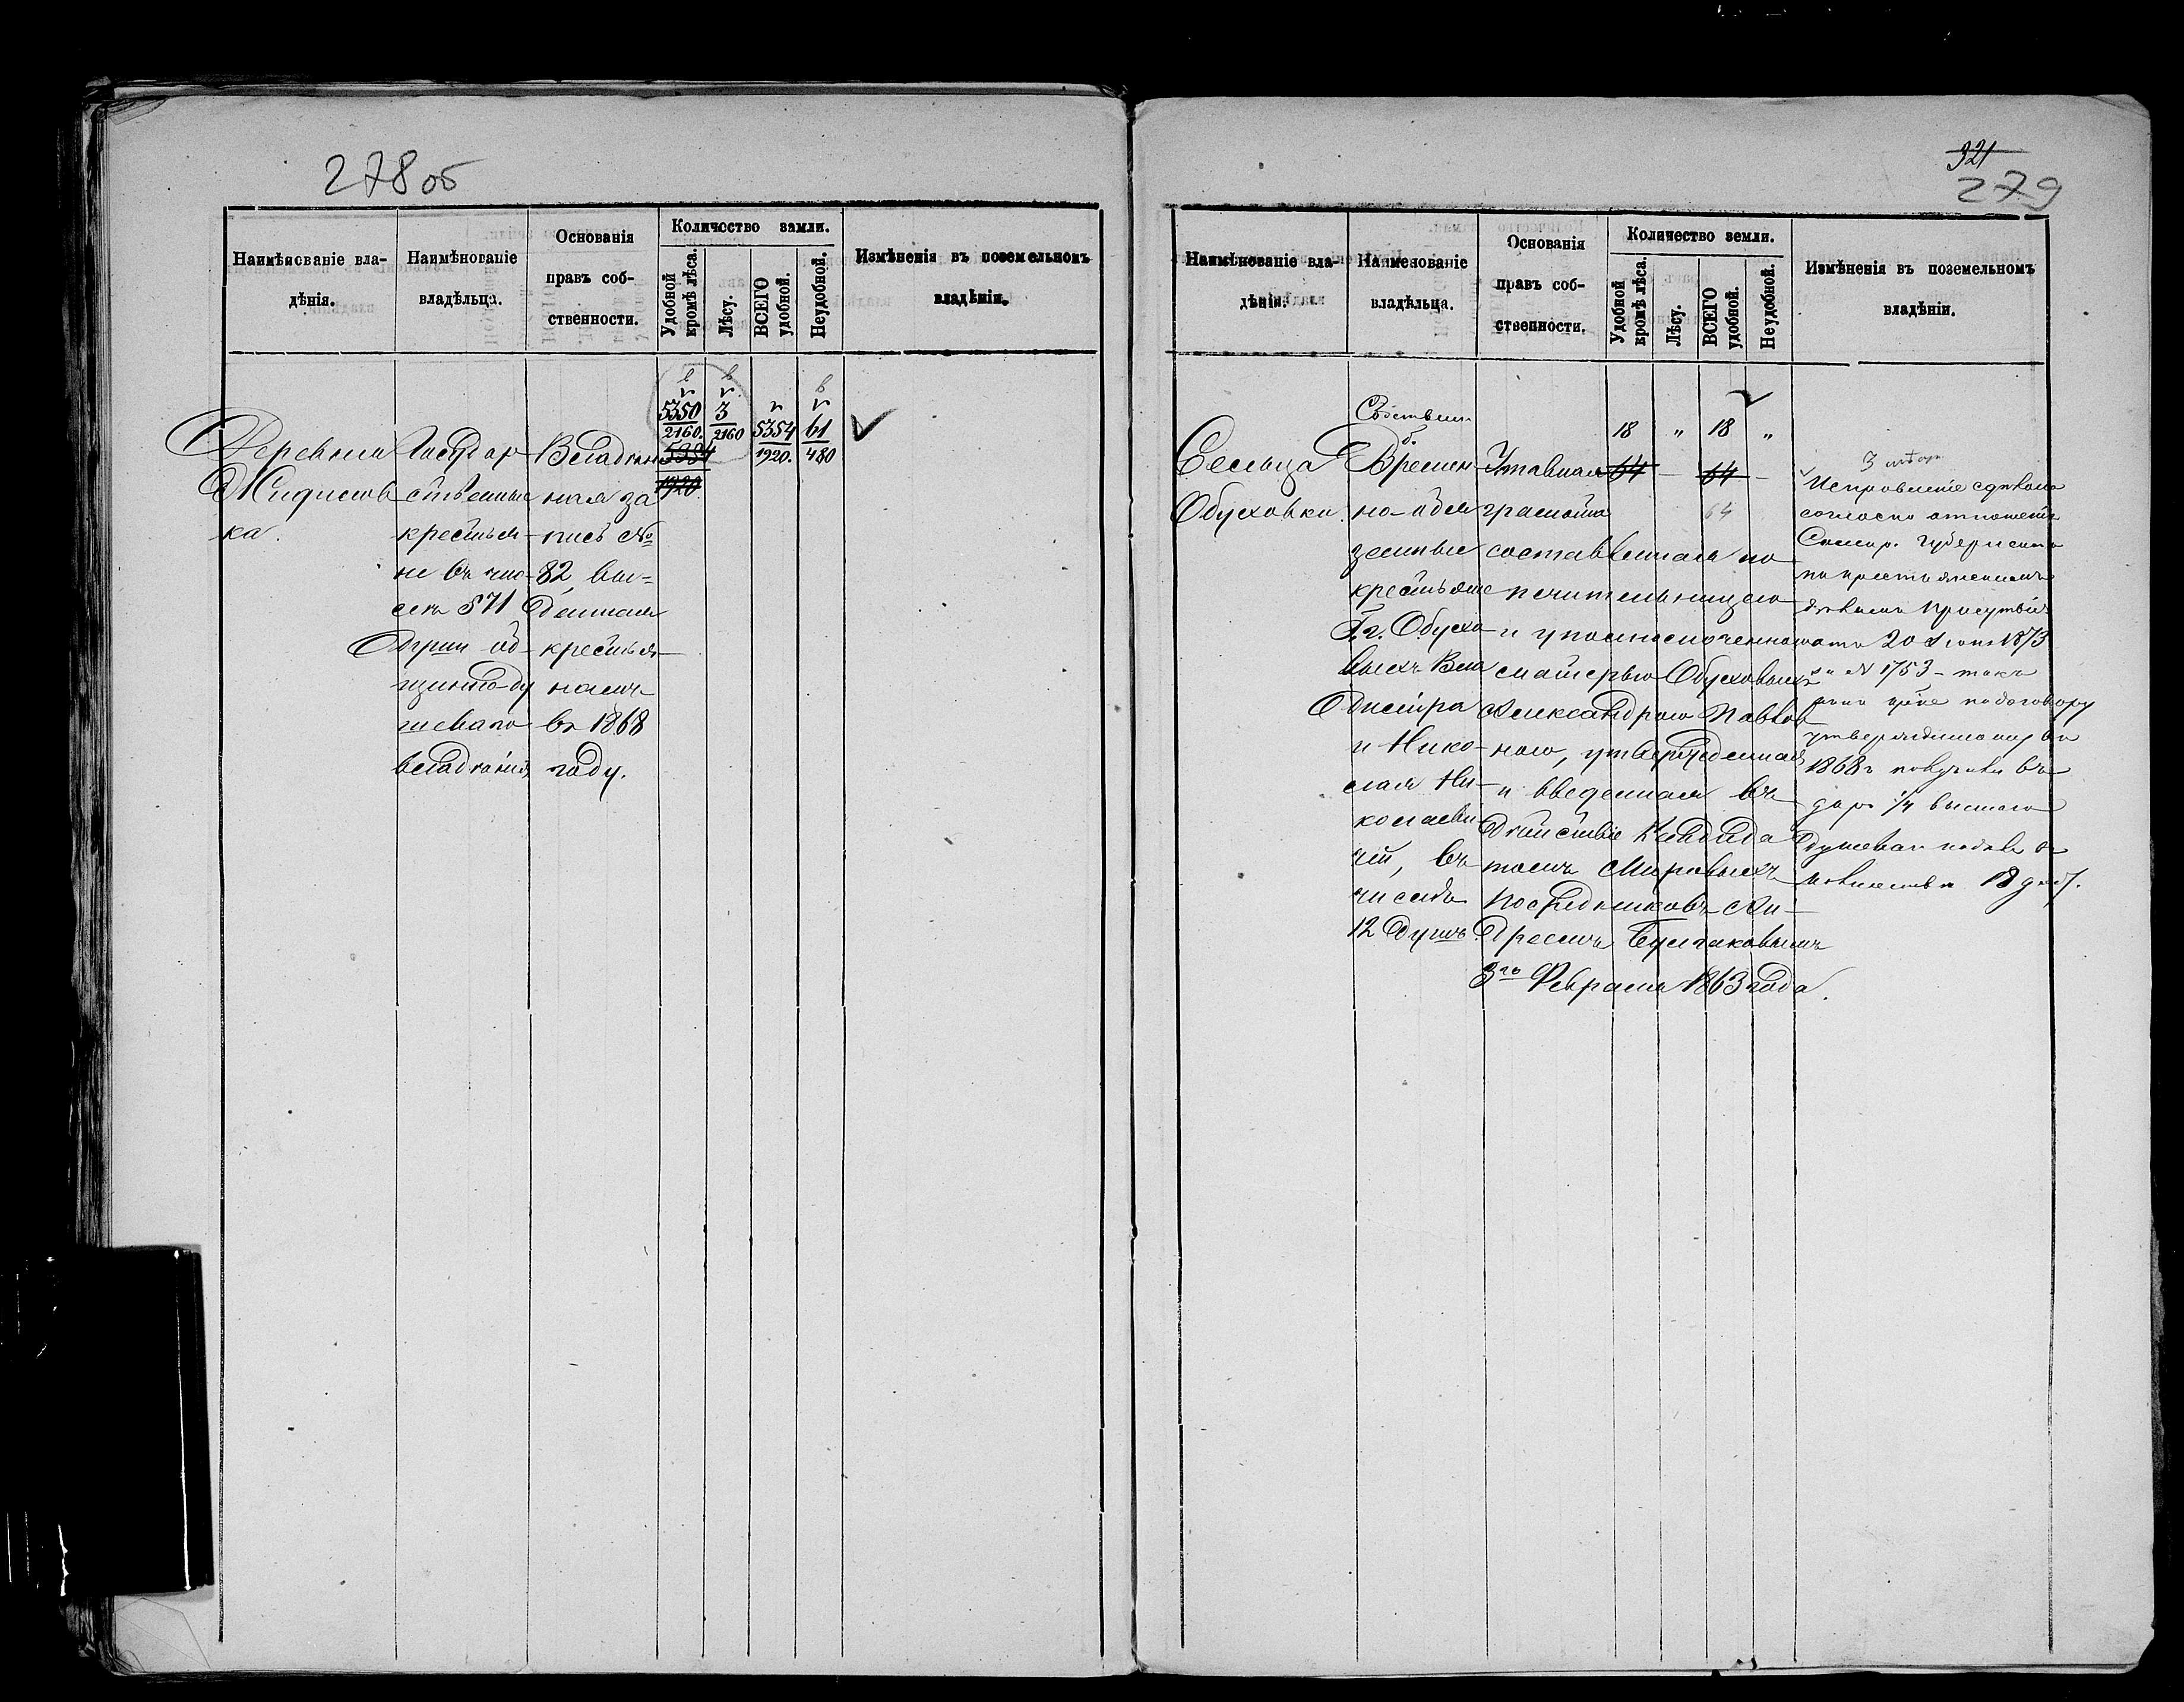 278 об
Наимѣнованіе вла-
дѣнія.
Наимѣнованіе
владѣльца.
Основанія
правъ соб-
ственности.
Количество земли.
Удобной
кромѣ лѣса.
Лѣсу.
ВСЕГО
удобной.
Неудобной.
Измѣненія въ поземельномъ
владѣніи.
Деревня
ка.
Государ
ственные
крестья-
не въ чис-
лѣ 571
души об-
щинно-ду
шеваго
владѣнія
Владѣн
ная за
пись №
82 вы-
данная
крестья-
намъ
въ 1868
году.
5350
2160.
5384
1920
3
2160
5354
1920.
61
480
321
279
Наимѣнованіе вла-
дѣнія.
Наименованіе
владѣльца.
Основанія
правъ соб-
ственности.
Количество земли.
Удобной
кромѣ лѣса.
Лѣсу.
ВСЕГО
удобной.
Неудобной.
Измѣненія въ поземельномъ
владѣніи.
Сельца
Обуховки.
Собствен.
б.
Времен
но-обя
занные
крестьяне
Г.г. Обухо-
выхъ Вла
димира
и Нико-
лая Ни-
колаеви-
чей, въ
числѣ
12 душъ.
Уставная
грамота
составленная по
печительницею
и уполномоченною
матерью Обуховыхъ
Александрою Павлов
ною, утвержденная
и введенная въ
дѣйствіе Кандида
томъ Мировыхъ
Посредниковъ Ан-
дреемъ Булгаковымъ
3го Февраля 1863 года.
18 „ 18 „
64 - 64 -
64
Исправленіе сдѣлано
согласно отношенія
Симбир. Губернскаго
по крестьянскимъ
дѣламъ Присутствія
отъ 20 Іюня 1873
за № 1753 - такъ
по договору
1868 г. получили въ
даръ 1/4 высшаго
душеваго надѣла въ
количествѣ 18 дес.